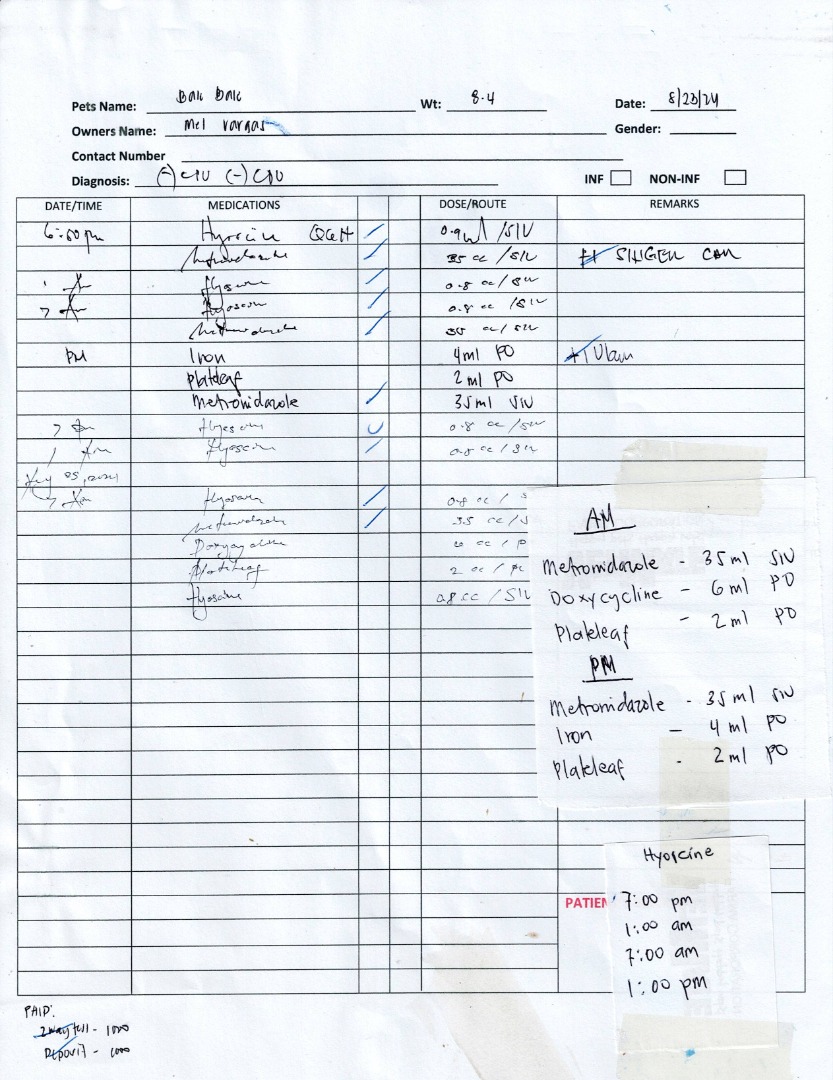 Pets Name: Bak Bak Wt: 8.4 Date: 8/23/24
Owners Name: Mel Vargas Gender:
Contact Number
Diagnosis: (-) CPV (-) CDV INF NON-INF
DATE/TIME MEDICATIONS DOSE/ROUTE REMARKS
6:00 pm Hyoscine Q6H 0.9ml /SIV
Metronidazole 35 cc /SIV
Hyoscine 0.8 cc / SIV
Hyoscine 0.8 cc /SIV
Metronidazole 35 cc / SIV
PM Iron 4ml PO
Plateleaf 2 ml PO
Metronidazole 35ml SIV
Hyoscine 0.8 cc / SIV
Hyoscine 0.8 cc / SIV
Hyoscine 0.8 cc / S
Metronidazole 35 cc /S
Doxycycline cc / P
Plateleaf 2 cc / PO
Hyoscine 0.8 cc / SIV
AM
Metronidazole - 35ml SIV
Doxycycline - 6ml PO
Plateleaf - 2ml PO
PM
Metronidazole - 35ml SIV
Iron - 4ml PO
Plateleaf - 2ml PO
Hyoscine
PATIEN
7:00 pm
1:00 am
7:00 am
1:00 pm
PAID:
2way test - 1000
Deposit - 1000